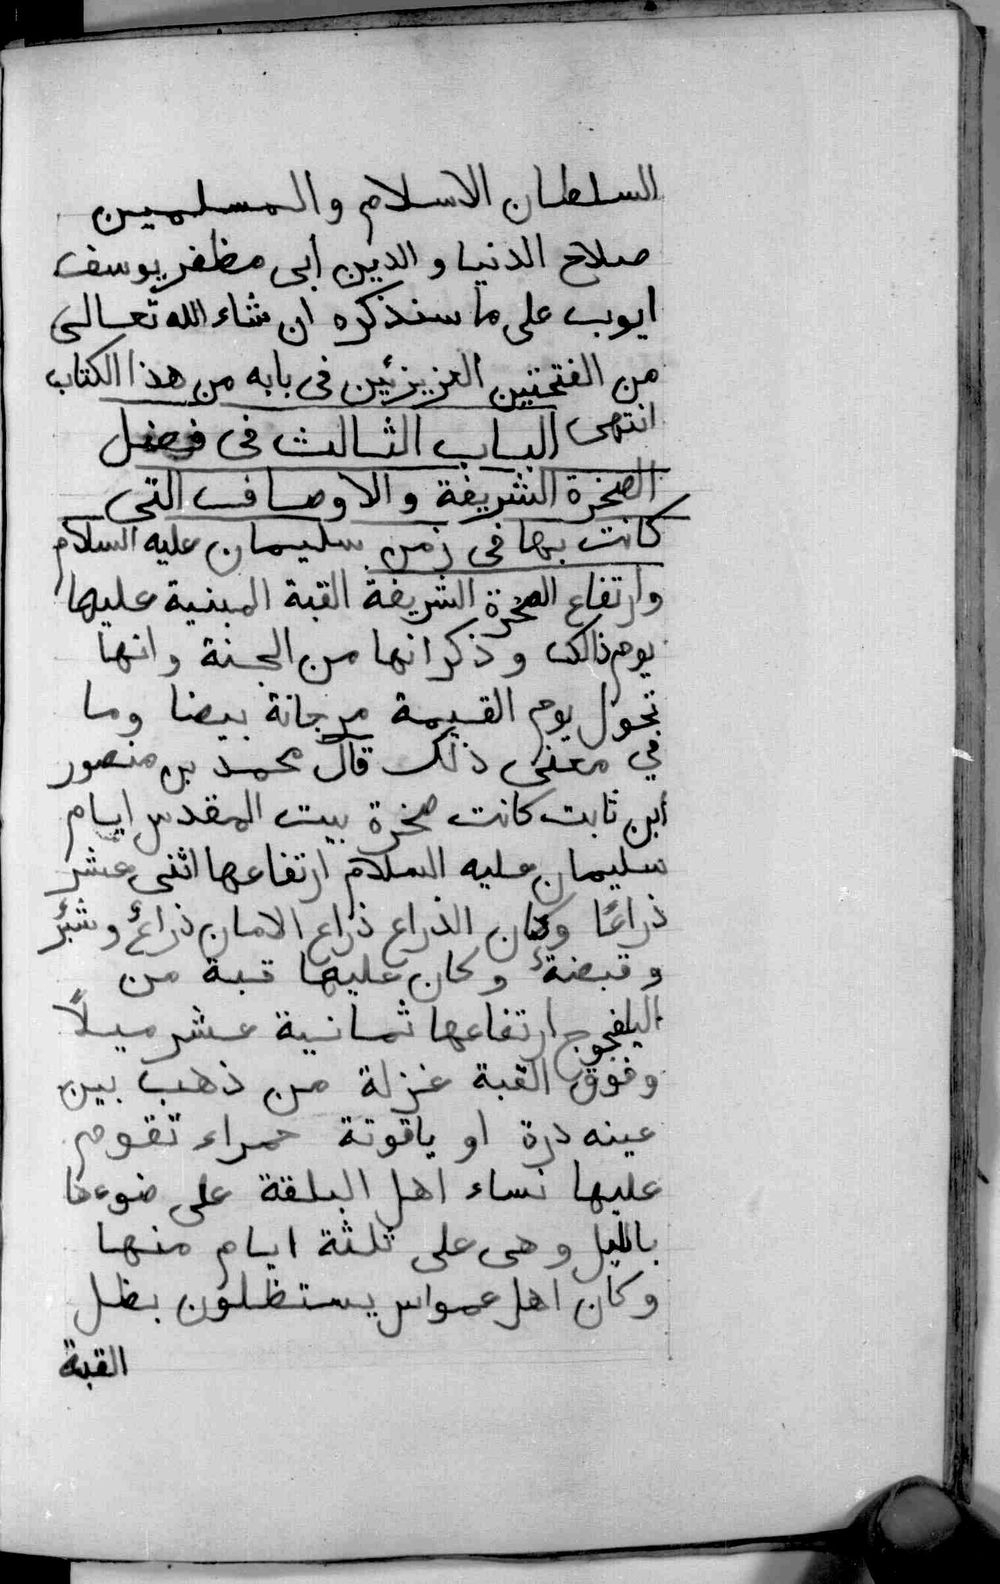 السلطان الاسلام والمسلمين
صلاح الدنيا والدين أبى مظفر يوسف
ايوب على ما سنذكره ان شاء الله تعالى
من الفتحتين العزيزئين فى بابه من هذا الكتاب
انتهى الباب الثالث فى فضل
الصخرة الشريفة والاوصاف التى
كانت بها فى زمن سليمان عليه السلام
وارتفاع الصخرة الشريفة القبة المبنية عليها
يوم ذالك وذكر انها من الجنة وانها
تحول يوم القيمة مرجانة بيضا وما
في معنى ذلك قال محمد بن منصور
أبن ثابت كانت صخرة بيت المقدس ايام
سليمان عليه السلام ارتفاعها اثنى عشر
ذراعًا وكان الذراع ذراع الامان ذراع وشبر
وقبضة وكان عليها قبة من
اليلفجوج ارتفاعها ثمانية عشر ميلاً
وفوق القبة غزلة من ذهب بين
عينه درة او ياقوتة حمراء تقوم
عليها نساء اهل البلقة على ضوءها
بالليل وهى على ثلثة ايام منها
وكان اهل عمواس يستظلون بظل
القبة